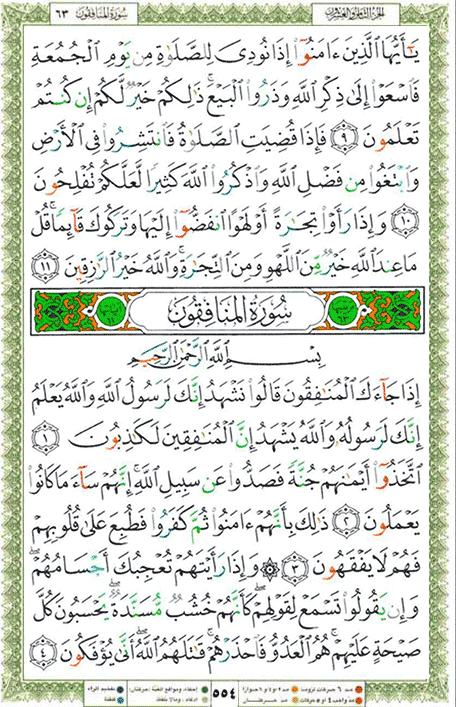 سُورَةُ المُنَافِقُونَ ٦٣
الجُزءُ الثَّامِنُ وَالعِشرُونَ
يَٰٓأَيُّهَا ٱلَّذِينَ ءَامَنُوٓا۟ إِذَا نُودِىَ لِلصَّلَوٰةِ مِن يَوْمِ ٱلْجُمُعَةِ
فَٱسْعَوْا۟ إِلَىٰ ذِكْرِ ٱللَّهِ وَذَرُوا۟ ٱلْبَيْعَ ۚ ذَٰلِكُمْ خَيْرٌ لَّكُمْ إِن كُنتُمْ
تَعْلَمُونَ ٩ فَإِذَا قُضِيَتِ ٱلصَّلَوٰةُ فَٱنتَشِرُوا۟ فِى ٱلْأَرْضِ
وَٱبْتَغُوا۟ مِن فَضْلِ ٱللَّهِ وَٱذْكُرُوا۟ ٱللَّهَ كَثِيرًا لَّعَلَّكُمْ تُفْلِحُونَ
١٠ وَإِذَا رَأَوْا۟ تِجَٰرَةً أَوْ لَهْوًا ٱنفَضُّوٓا۟ إِلَيْهَا وَتَرَكُوكَ قَآئِمًا ۚ قُلْ
مَا عِندَ ٱللَّهِ خَيْرٌ مِّنَ ٱللَّهْوِ وَمِنَ ٱلتِّجَٰرَةِ ۚ وَٱللَّهُ خَيْرُ ٱلرَّٰزِقِينَ ١١
سُورَةُ المُنَافِقُونَ
بِسْمِ ٱللَّهِ ٱلرَّحْمَٰنِ ٱلرَّحِيمِ
إِذَا جَآءَكَ ٱلْمُنَٰفِقُونَ قَالُوا۟ نَشْهَدُ إِنَّكَ لَرَسُولُ ٱللَّهِ ۗ وَٱللَّهُ يَعْلَمُ
إِنَّكَ لَرَسُولُهُۥ وَٱللَّهُ يَشْهَدُ إِنَّ ٱلْمُنَٰفِقِينَ لَكَٰذِبُونَ ١
ٱتَّخَذُوٓا۟ أَيْمَٰنَهُمْ جُنَّةً فَصَدُّوا۟ عَن سَبِيلِ ٱللَّهِ ۚ إِنَّهُمْ سَآءَ مَا كَانُوا۟
يَعْمَلُونَ ٢ ذَٰلِكَ بِأَنَّهُمْ ءَامَنُوا۟ ثُمَّ كَفَرُوا۟ فَطُبِعَ عَلَىٰ قُلُوبِهِمْ
فَهُمْ لَا يَفْقَهُونَ ٣ ۞ وَإِذَا رَأَيْتَهُمْ تُعْجِبُكَ أَجْسَامُهُمْ ۖ
وَإِن يَقُولُوا۟ تَسْمَعْ لِقَوْلِهِمْ ۖ كَأَنَّهُمْ خُشُبٌ مُّسَنَّدَةٌ ۖ يَحْسَبُونَ كُلَّ
صَيْحَةٍ عَلَيْهِمْ ۚ هُمُ ٱلْعَدُوُّ فَٱحْذَرْهُمْ ۚ قَٰتَلَهُمُ ٱللَّهُ ۖ أَنَّىٰ يُؤْفَكُونَ ٤
٥٥٤